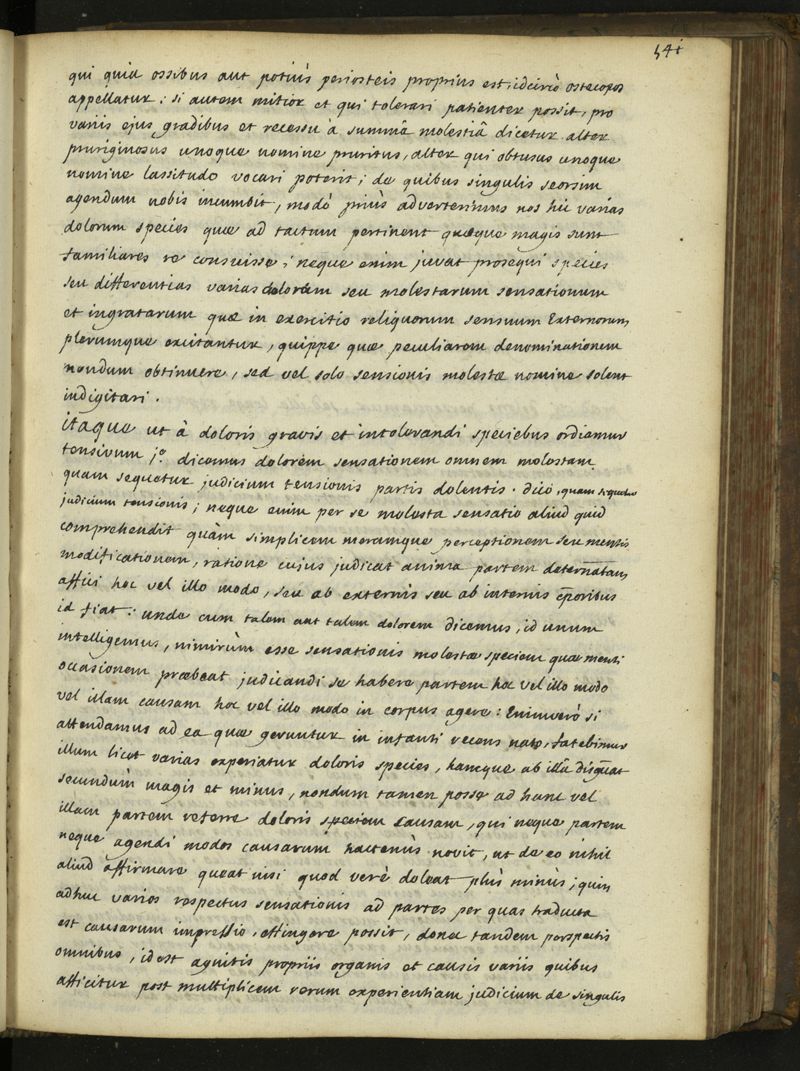 541
qui quia ossibus aut potiùs periosteis proprius est, idcircò ostecopos
appellatur: si autem mitior et qui tolerari patienter possit, pro
variis ejus gradibus et recessu à summâ molestiâ dicetur alter
pruriginosus unoque nomine pruritus, alter qui obtusus unoque
nomine lassitudo vocari poterit; de quibus singulis seorsim
agendum nobis incumbit, modò priùs adverterimus nos hic varias
dolorum species quæ ad tactum pertinent quæque magis sunt
familiares re censuisse; neque enim juvat prosequi species
seu differentias varias dolorum seu molestarum sensationum
et ingratarum quæ in exercitio reliquorum sensuum Externorum
plerumque excitantur, quippe quæ peculiarem denominationem
nondum obtinuere, sed vel solo sensionis molestæ nomine solent
indigitari.
itaque ut à doloris gravis et intolerandi speciebus ordiamur
tensivum 1º. dicemus dolorem sensationem omnem molestam
quam sequatur judicium tensionis partis dolentis. dico, quam sequatur
judicium tensionis; neque enim per se molesta sensatio aliud quid
comprehendit quàm simplicem meramque perceptionem seu mentis
modificationem, ratione cujus judicat anima partem determ̄atam
affici hoc vel illo modo, seu ab externis seu ab internis c̄poribus
id fiat: unde cum talem aut talem dolorem dicemus, id unum
intelligemus, nimirùm esse sensationis molestæ speciem quæ menti
occasionem præbeat judicandi se habere partem hoc vel illo modo
vel illam causam hoc vel illo modo in corpus agere: Enimverò si
attendamus ad ea quæ geruntur in infanti recens nato, fatebimur
illum licet varias experiatur doloris species, hancque ab illâ disting̅uat
secundùm magis et minus, nondum tamen posse ad hanc vel
illam partem referre doloris speciem causam, qui neque partem
neque agendi modos causarum hactenùs novit, ut de eo nihil
aliud affirmare queat nisi quod verè doleat plùs minùs; quin
adhuc varios respectus sensationis ad partes per quas traducta
est causarum impressio, effingere possit, donec tandem perspectis
omnibus, id est agnitis propriis organis et causis variis quibus
afficitur post multiplicem rerum experientiam judicium de singulis